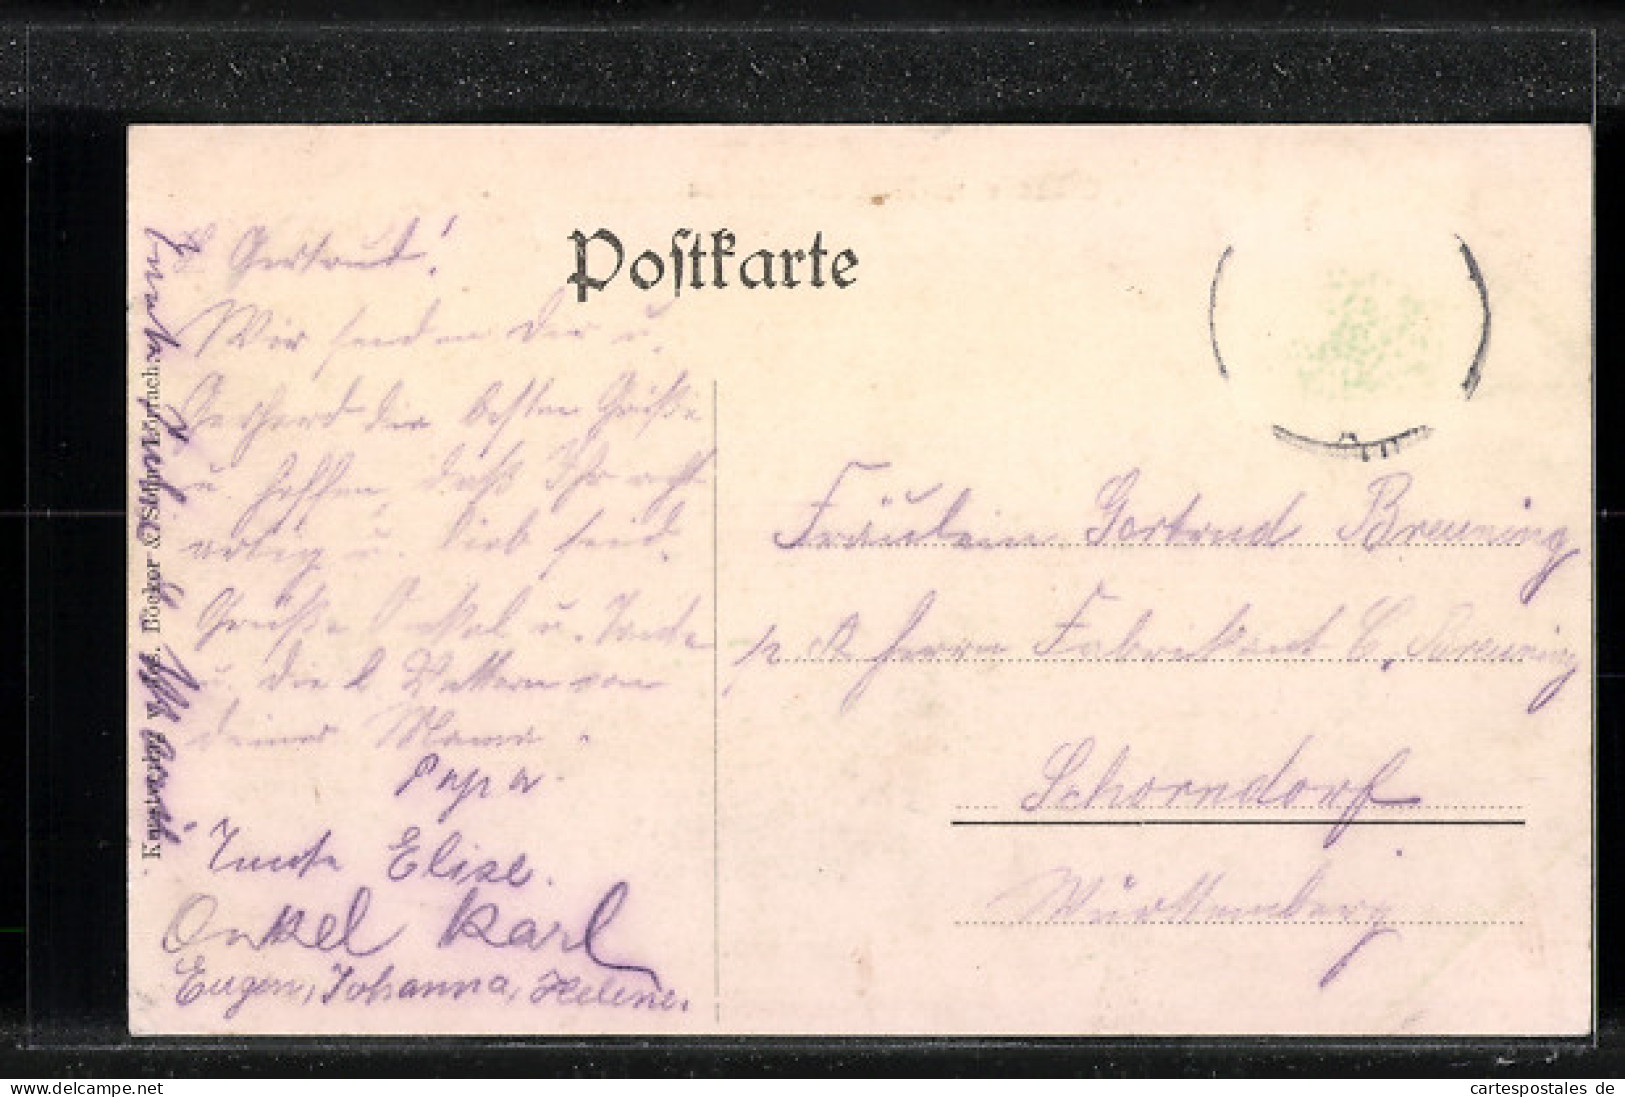 Postkarte
L. Gertrud!
Wir senden Dir u.
Gerhard die besten Grüße
u. hoffen, daß Ihr recht
artig u. lieb seid.
Grüße Onkel u. Tante
u. die l. Vettern von
deiner Mama.
Papa.
Tante Elise.
Onkel Karl
Eugen, Johanna, Helene.
Fräulein Gertrud Breuning
p. A. Herrn Fabrikant C. Breuning
Schorndorf
Württemberg
cartespostales de